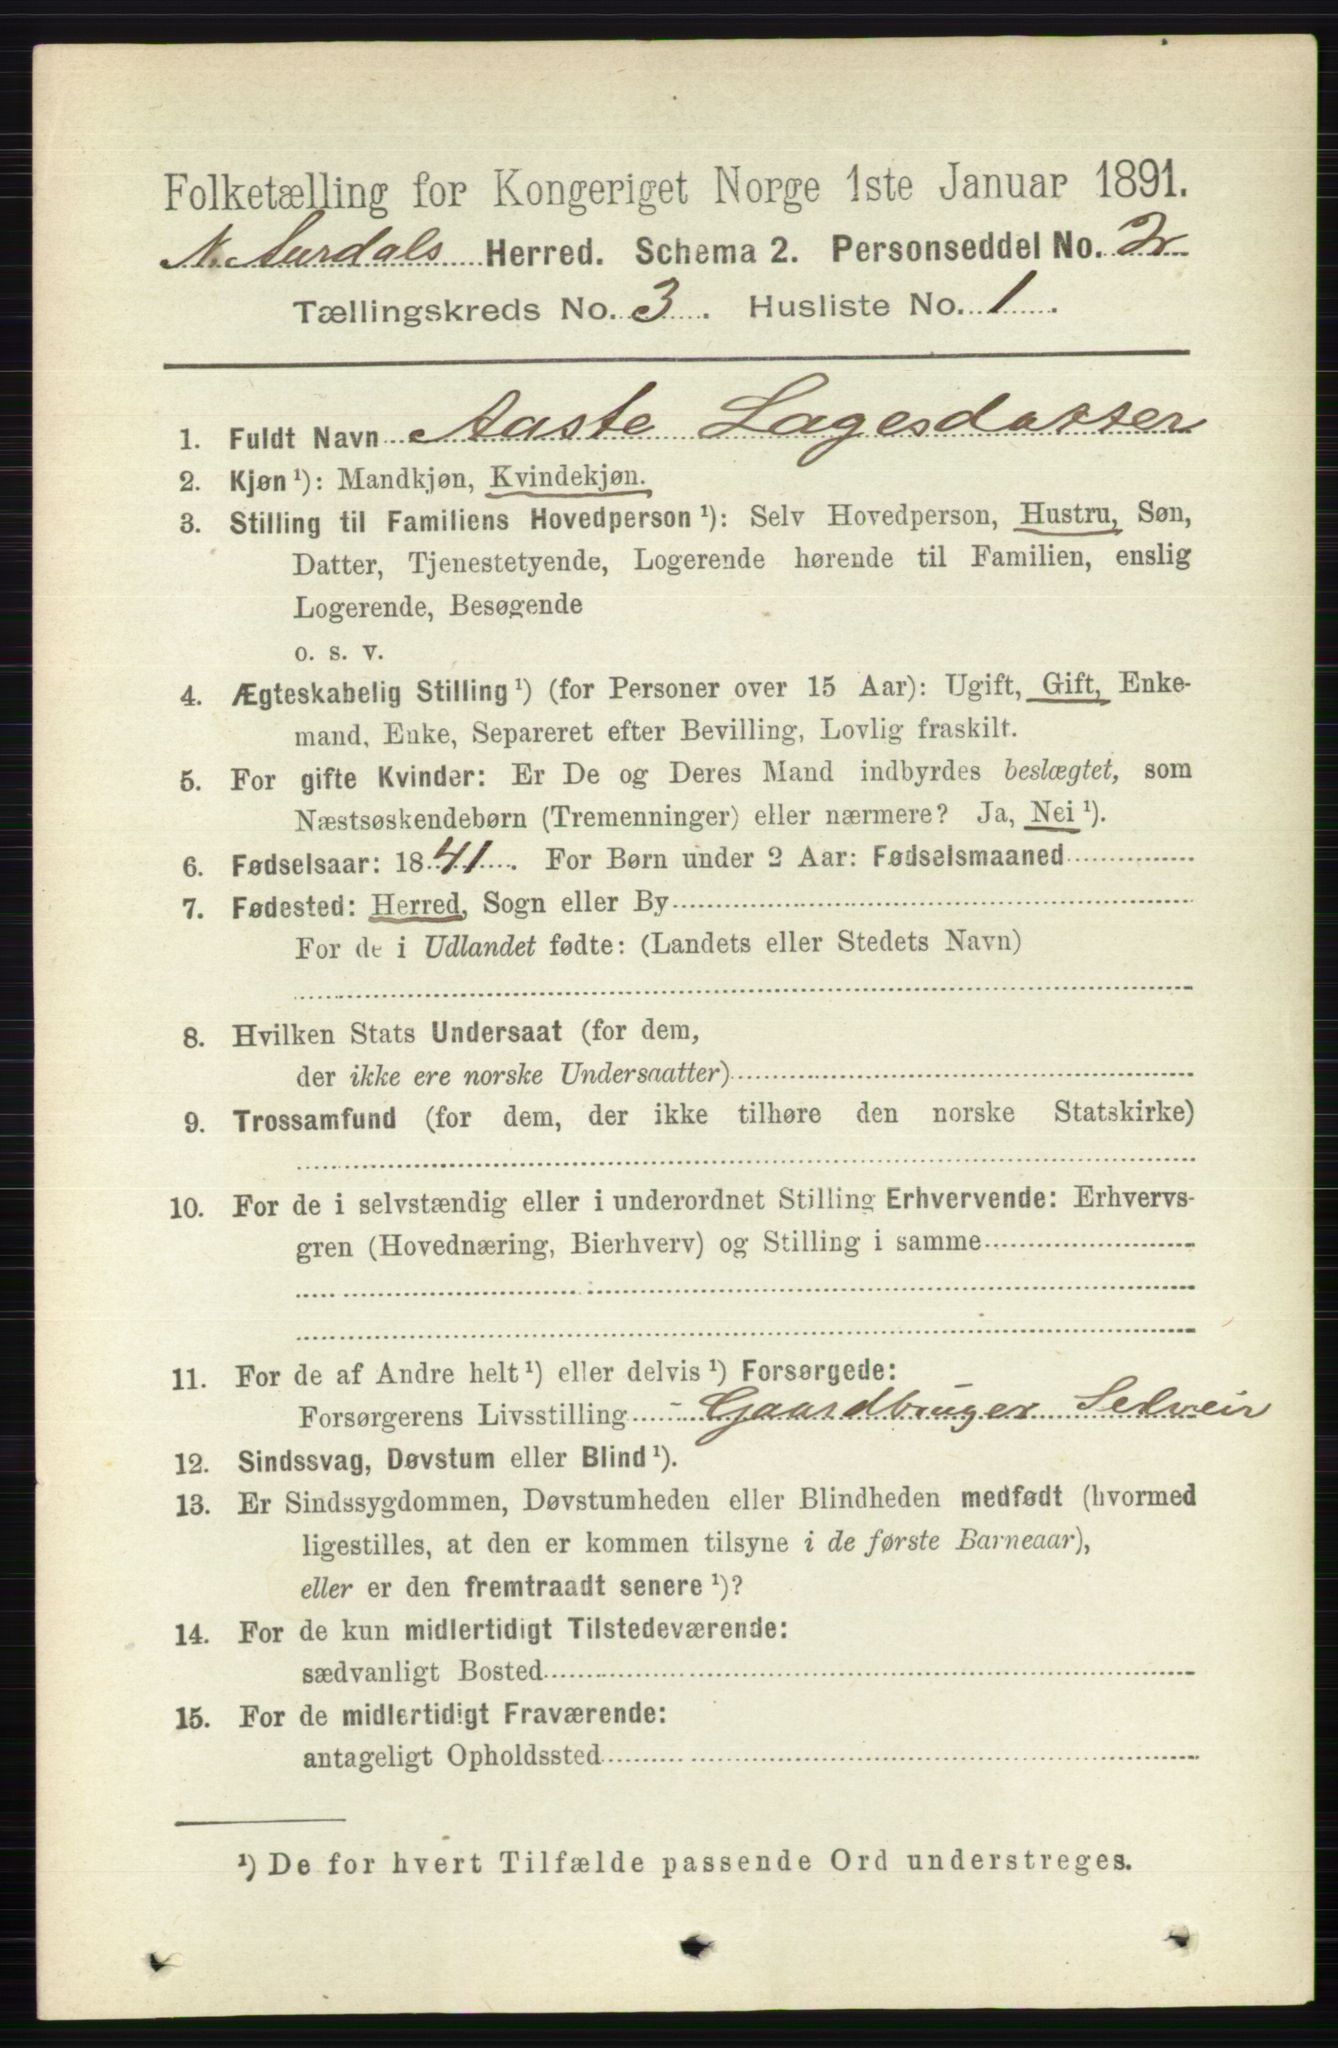 Folketælling for Kongeriget Norge 1ste Januar 1891.
N. Aurdals Herred. Schema 2. Personseddel No. 2
Tællingskreds No. 3. Husliste No. 1.
1. Fuldt Navn Aaste Lagesdatter
2. Kjøn ¹): Mandkjøn, Kvindekjøn.
3. Stilling til Familiens Hovedperson ¹): Selv Hovedperson, Hustru, Søn,
Datter, Tjenestetyende, Logerende hørende til Familien, enslig
Logerende, Besøgende
o. s. v.
4. Ægteskabelig Stilling ¹) (for Personer over 15 Aar): Ugift, Gift, Enke-
mand, Enke, Separeret efter Bevilling, Lovlig fraskilt.
5. For gifte Kvinder: Er De og Deres Mand indbyrdes beslægtet, som
Næstsøskendebørn (Tremenninger) eller nærmere? Ja, Nei ¹).
6. Fødselsaar: 1841. For Børn under 2 Aar: Fødselsmaaned
7. Fødested: Herred, Sogn eller By
For de i Udlandet fødte: (Landets eller Stedets Navn)
8. Hvilken Stats Undersaat (for dem,
der ikke ere norske Undersaatter)
9. Trossamfund (for dem, der ikke tilhøre den norske Statskirke)
10. For de i selvstændig eller i underordnet Stilling Erhvervende: Erhvervs-
gren (Hovednæring, Bierhverv) og Stilling i samme
11. For de af Andre helt ¹) eller delvis ¹) Forsørgede:
Forsørgerens Livsstilling - Gaardbruger Selveir
12. Sindssvag, Døvstum eller Blind ¹).
13. Er Sindssygdommen, Døvstumheden eller Blindheden medfødt (hvormed
ligestilles, at den er kommen tilsyne i de første Barneaar),
eller er den fremtraadt senere ¹)?
14. For de kun midlertidigt Tilstedeværende:
sædvanligt Bosted
15. For de midlertidigt Fraværende:
antageligt Opholdssted
¹) De for hvert Tilfælde passende Ord understreges.